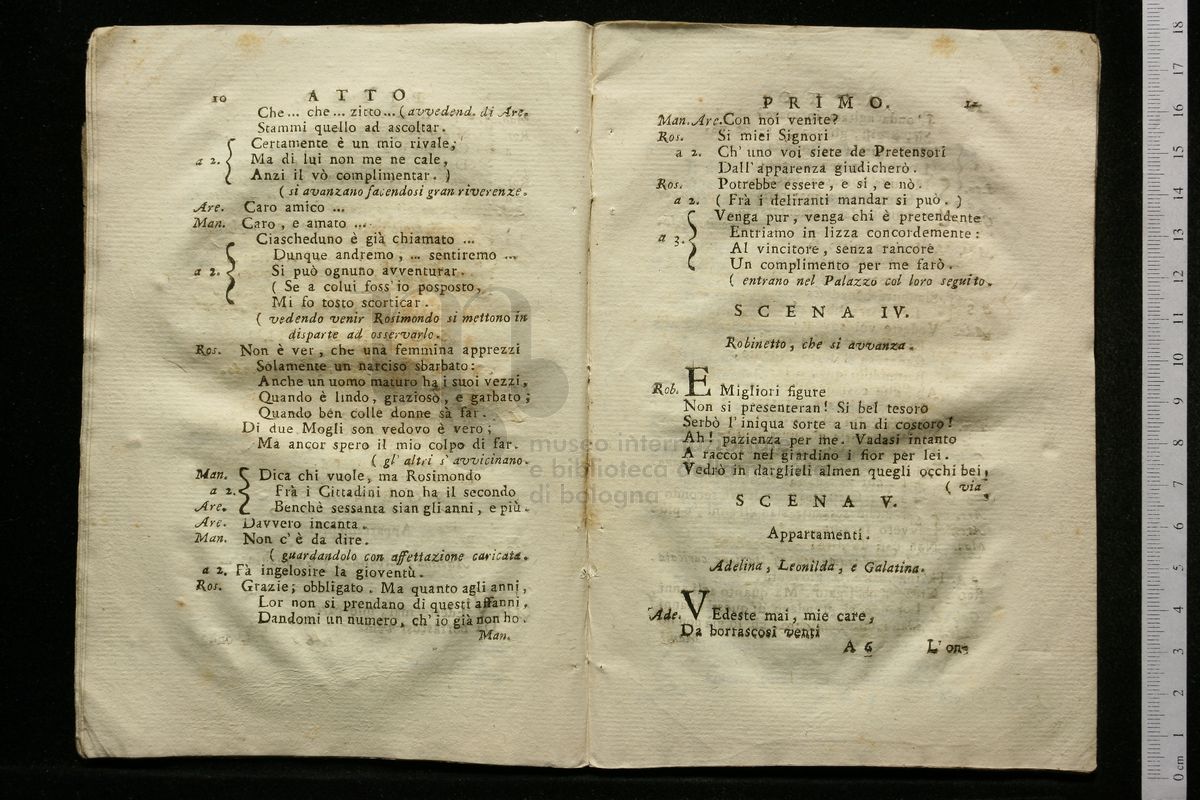 10 ATTO
Che... che... zitto... (avvedend. di Are.
Stammi quello ad ascoltar.
Certamente è un mio rivale;
a 2. Ma di lui non me ne cale,
Anzi il vò complimentar. )
( si avanzano facendosi gran riverenze.
Are. Caro amico ...
Man. Caro, e amato ...
Ciascheduno è già chiamato ...
Dunque andremo, ... sentiremo ...
a 2. Si può ognuno avventurar.
( Se a colui foss' io posposto,
Mi fo tosto scorticar.
( vedendo venir Rosimondo si mettono in
disparte ad osservarlo.
Ros. Non è ver, che una femmina apprezzi
Solamente un narciso sbarbato:
Anche un uomo maturo ha i suoi vezzi,
Quando è lindo, grazioso, e garbato;
Quando ben colle donne sa far.
Di due Mogli son vedovo è vero;
Ma ancor spero il mio colpo di far.
( gl' altri s' avvicinano.
Man. Dica chi vuole, ma Rosimondo
a 2. Frà i Cittadini non ha il secondo
Are. Benchè sessanta sian gli anni, e più.
Are. Davvero incanta.
Man. Non c' è da dire.
( guardandolo con affettazione caricata.
a 2. Fà ingelosire la gioventù.
Ros. Grazie; obbligato. Ma quanto agli anni,
Lor non si prendano di questi affanni,
Dandomi un numero, ch' io già non ho.
Man.
PRIMO. 11
Man. Are. Con noi venite?
Ros. Si miei Signori
a 2. Ch' uno voi siete de Pretensori
Dall' apparenza giudicherò.
Ros. Potrebbe essere, e sì, e nò.
a 2. ( Frà i deliranti mandar si può. )
Venga pur, venga chi è pretendente
a 3. Entriamo in lizza concordemente:
Al vincitore, senza rancore
Un complimento per me farò.
( entrano nel Palazzo col loro seguito.
SCENA IV.
Robinetto, che si avvanza.
Rob. E Migliori figure
Non si presenteran! Si bel tesoro
Serbò l' iniqua sorte a un di costoro!
Ah! pazienza per me. Vadasi intanto
A raccor nel giardino i fior per lei.
Vedrò in darglieli almen quegli occhi bei,
( via
SCENA V.
Appartamenti.
Adelina, Leonilda, e Galatina.
Ade. VEdeste mai, mie care,
Da borrascosi venti
A 6 L' on-
museo internazionale
e biblioteca della
di bologna